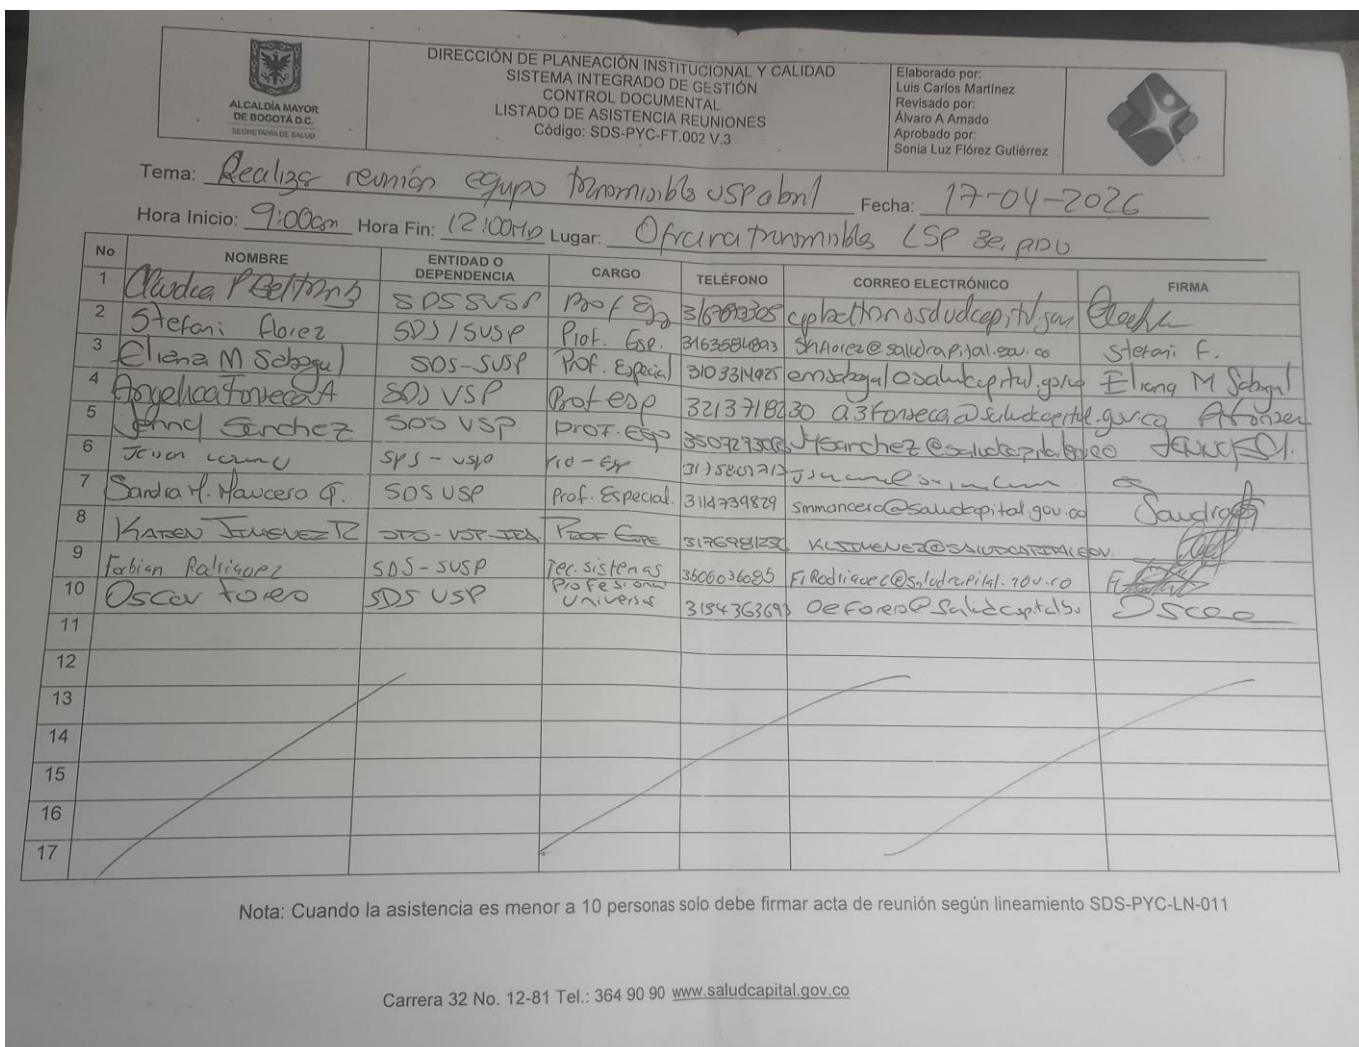 ALCALDÍA MAYOR
DE BOGOTÁ D.C.
SECRETARÍA DE SALUD
DIRECCIÓN DE PLANEACIÓN INSTITUCIONAL Y CALIDAD
SISTEMA INTEGRADO DE GESTIÓN
CONTROL DOCUMENTAL
LISTADO DE ASISTENCIA REUNIONES
Código: SDS-PYC-FT.002 V.3
Elaborado por:
Luis Carlos Martínez
Revisado por:
Álvaro A Amado
Aprobado por:
Sonia Luz Flórez Gutiérrez
Tema: Realizar reunión equipo USP abril Fecha: 17-04-2026
Hora Inicio: 9:00am Hora Fin: 12:00 Lugar: LSP
No NOMBRE ENTIDAD O DEPENDENCIA CARGO TELÉFONO CORREO ELECTRÓNICO FIRMA
1 Claudia P Beltran SDS SVSP Prof
2 Stefani florez SDS/SUSP Prof. Esp. 3163584893 Shflorez@saludcapital.gov.co Stefani F.
3 Eliana M Sabogal SDS-SUSP Prof. Especial 3103314925 emsabogal@saludcapital.gov.co Eliana M Sabogal
4 Angelica Fonseca A SDS VSP Prof esp 3213718230 a3fonseca@saludcapital.gov.co AFonseca
5 Sanchez SDS VSP Prof. Esp
6
7 Sandra M. Mancera G. SDS USP Prof. Especial. 3114739829 smmancera@saludcapital.gov.co Sandra
8 KAREN JIMENEZ R Prof Espe
9 Fabian Rodriguez SDS-SUSP Tec. sistemas 3606036085 FiRodriguez@saludcapital.gov.co
10 Oscar forero SDS USP Profesional Univers Oscar
11
12
13
14
15
16
17
Nota: Cuando la asistencia es menor a 10 personas solo debe firmar acta de reunión según lineamiento SDS-PYC-LN-011
Carrera 32 No. 12-81 Tel.: 364 90 90 www.saludcapital.gov.co